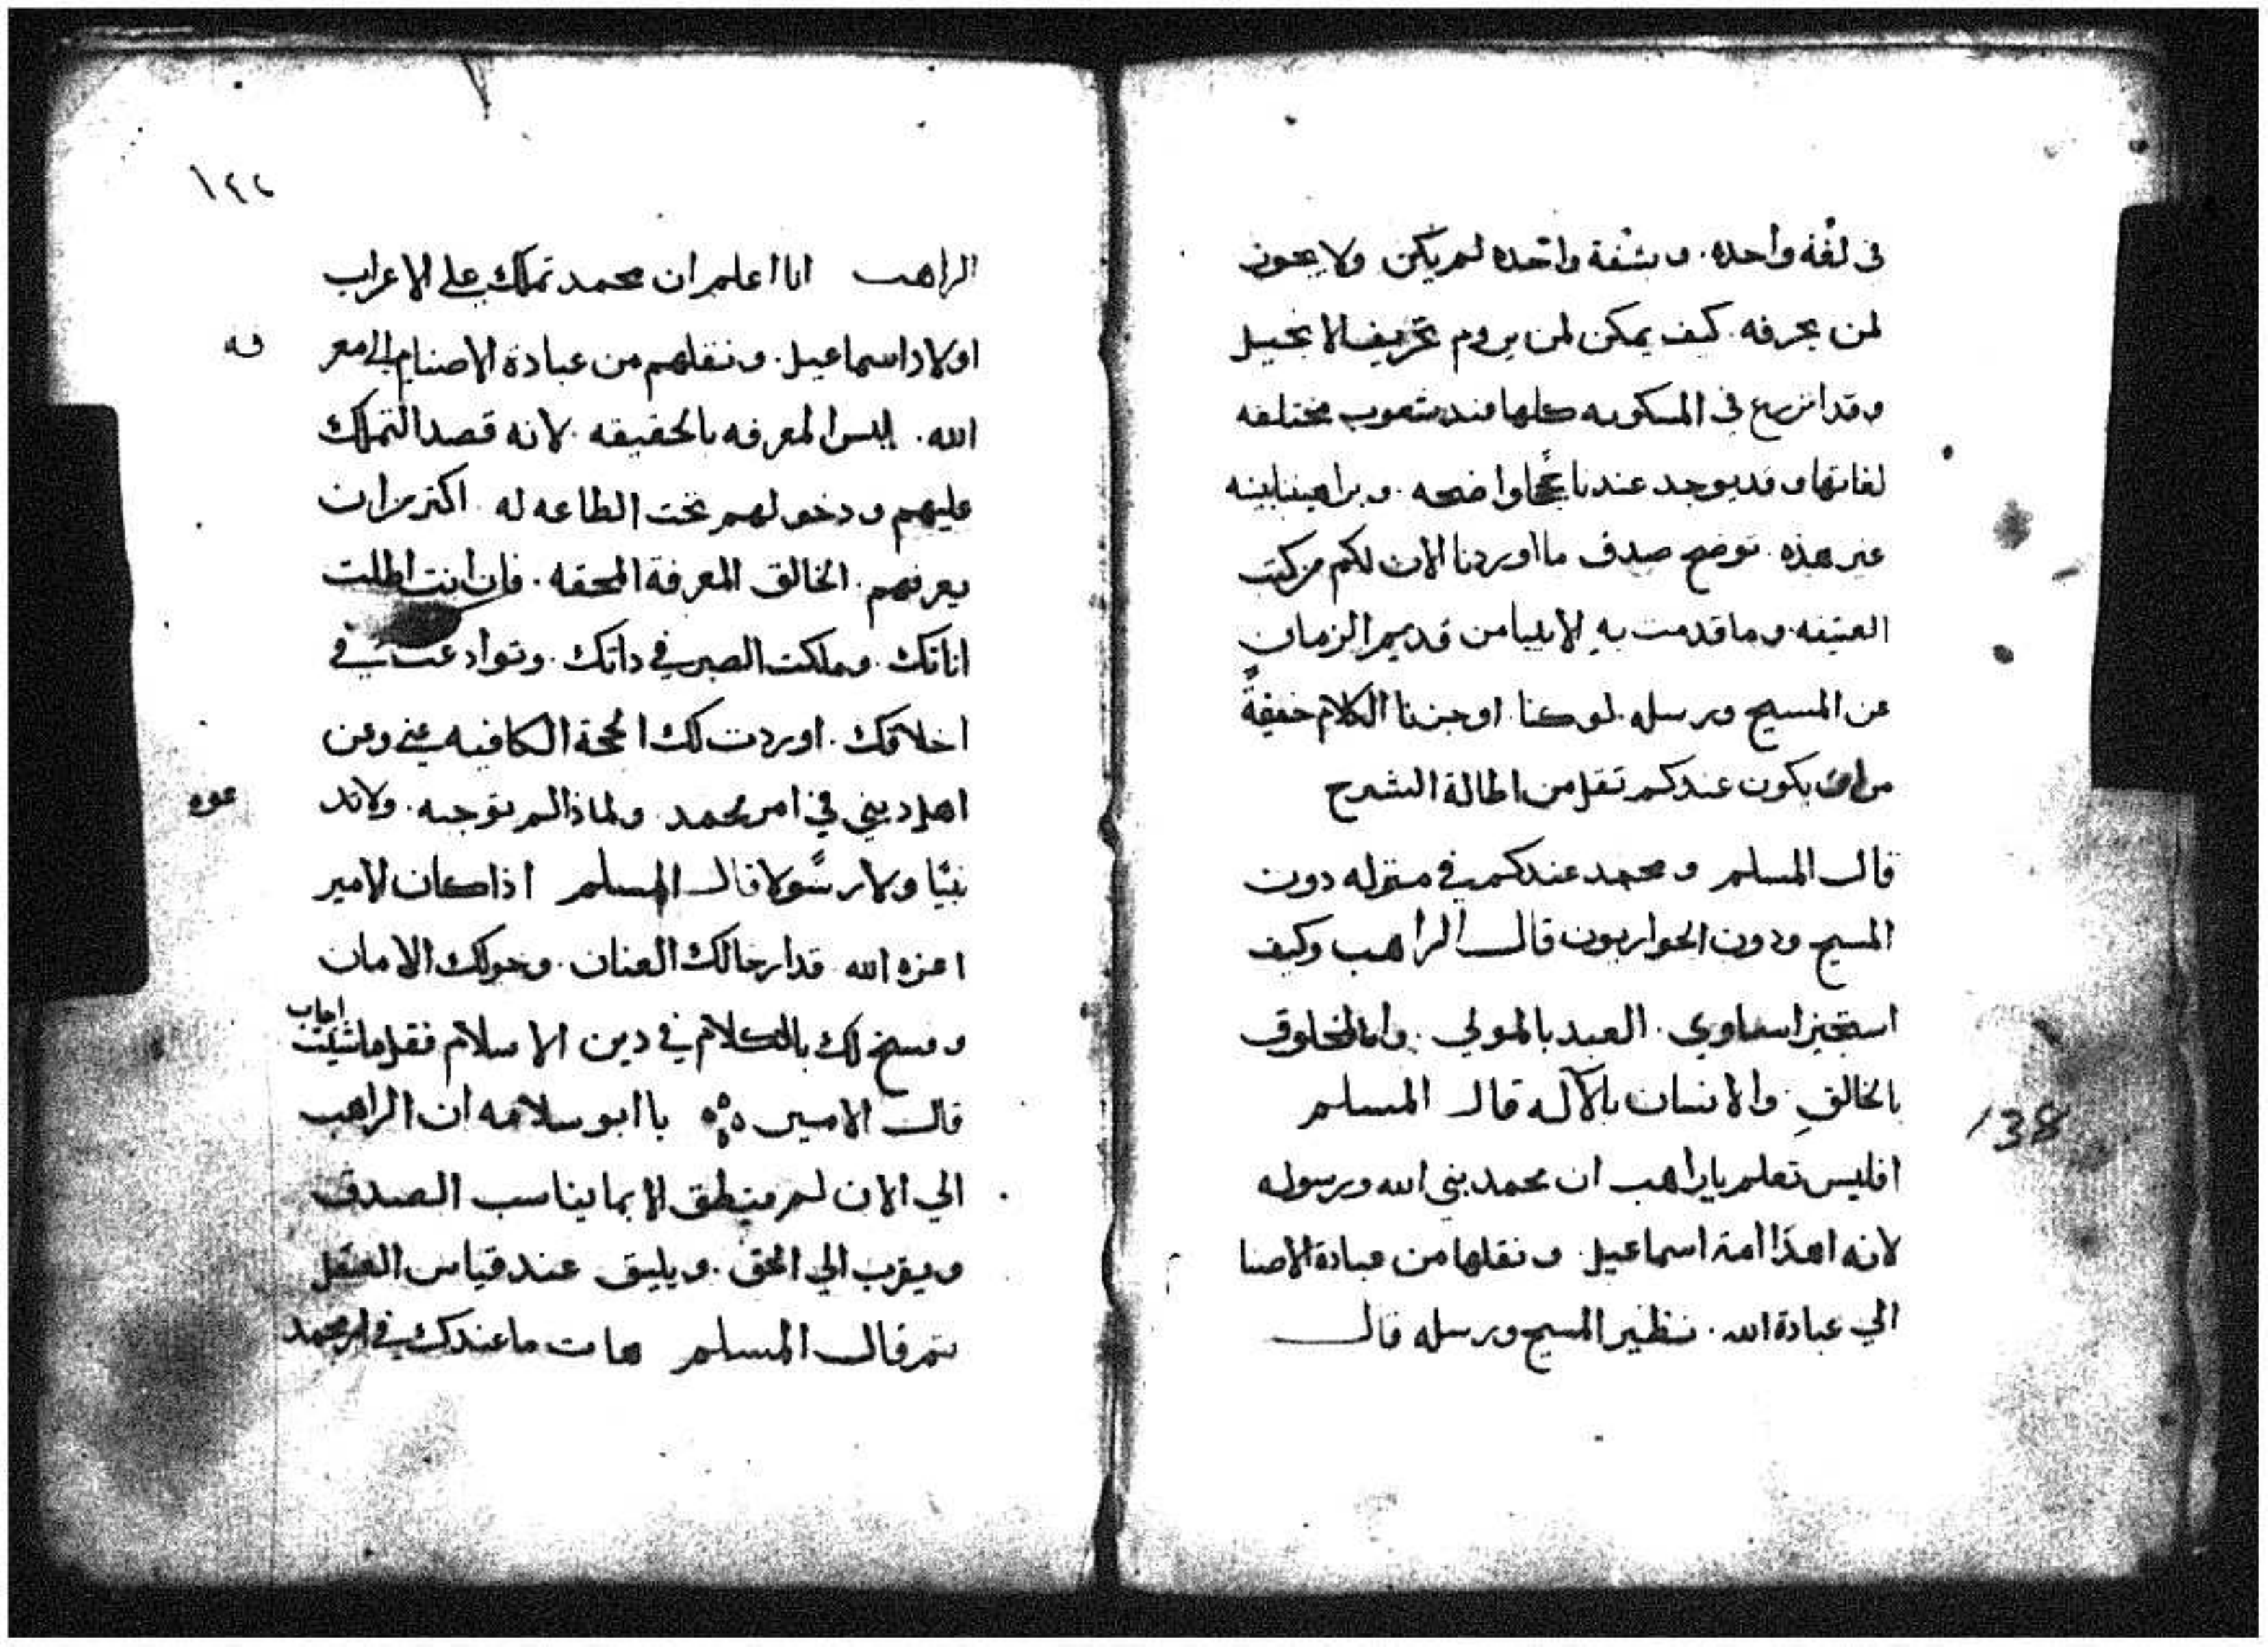 في لغه واحده. وبشفة واحده لم يكن ولا يجوز
لمن يحرفه. كيف يمكن لمن يروم تحريف الانجيل
وقد انزرع في المسكونه كلها عند شعوب مختلفه
لغاتها وقد يوجد عندنا حججا واضحه. وبراهينا بينه
غير هذه. توضح صدق ما اوردنا الان لكم من كتب
العتيقه. وما قدمت به الانبيا من قديم الزمان
عن المسيح ورسله. لو كنا اوجزنا الكلام خيفةً
من ان يكون عندكم ثقل من اطالة الشرح
قال المسلم ومحمد عندكم في منزله دون
المسيح ودون الحواريون قال الراهب وكيف
استجيز اساوي. العبد بالمولي. والمخلوق
بالخالق. والانسان بالآله قال المسلم
افليس تعلم ياراهب ان محمد نبي الله ورسوله
لانه اهدا امة اسماعيل. ونقلها من عبادة الاصنا
الي عبادة الله. نظير المسيح ورسله قال
138
١٤٢
الراهب انا اعلم ان محمد تملك علي الاعراب
اولاد اسماعيل. ونقلهم من عبادة الاصنام الي معر فه
الله. ليس المعرفه بالحقيقه. لانه قصد التملك
عليهم ودخولهم تحت الطاعه له. اكثر من ان
يعرفهم. الخالق المعرفة المحقه. فان انت اطلت
اناتك. وملكت الصبر في داتك. وتوادعت في
اخلاقك. اوردت لك الحجة الكافيه عني وعن
اهل ديني في امر محمد ولماذا لم نوجبه. ولاند عوه
نبيًا ولا رسولا قال المسلم اذا كان الامير
اعزه الله قد ارخا لك العنان. وخولك الامان
وفسح لك بالكلام في دين الاسلام فقل ماشيت اجاب
قال الامير يا ابو سلامه ان الراهب
الي الان لم ينطق الا بما يناسب الصدق
ويقرب الي الحق. ويليق عند قياس العقل
ثم قال المسلم هات ما عندك في امر محمد